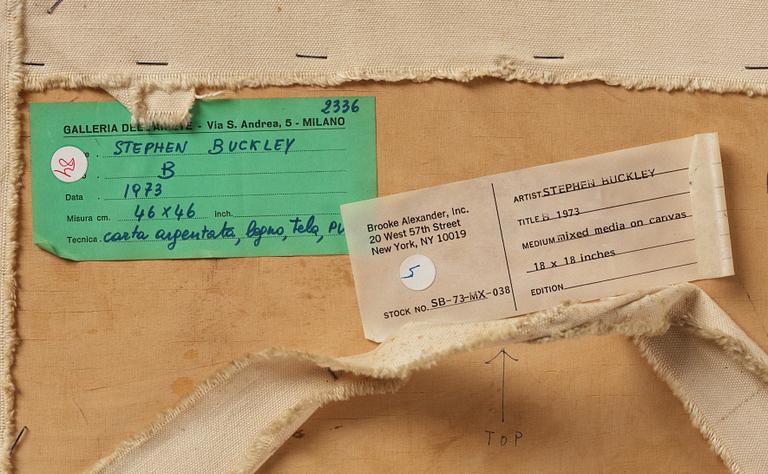 2336
GALLERIA - Via S. Andrea, 5 - MILANO
STEPHEN BUCKLEY
B
Data . 1973
Misura cm. 46 x 46 inch.
Tecnica . carta argentata, legno, tela,
Brooke Alexander, Inc.
20 West 57th Street
New York, NY 10019
5
STOCK NO. SB-73-MX-038
ARTIST STEPHEN BUCKLEY
TITLE B 1973
MEDIUM mixed media on canvas
18 x 18 inches
EDITION
TOP